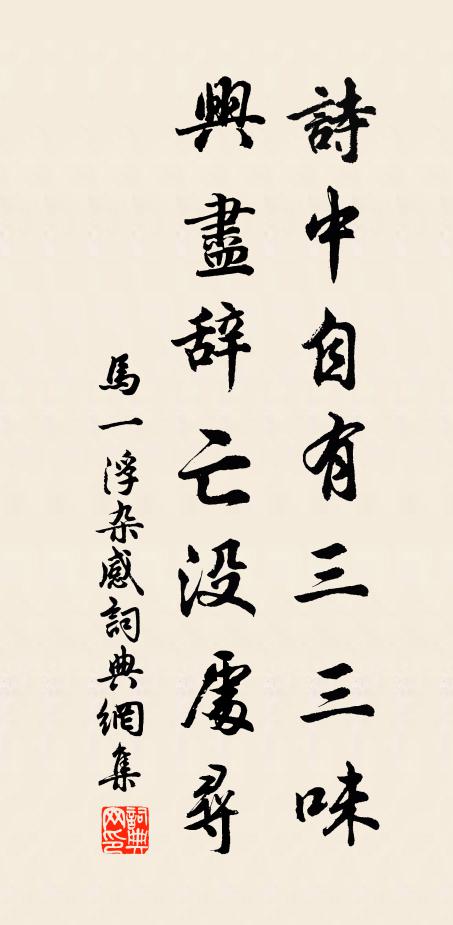 詩中自有三三味
興盡辞亡没處尋
馬一浮杂感詞典網集
詞典网印